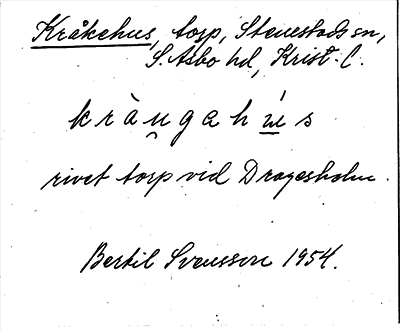 Kråkehus, torp, Stenestads sn,
S. Åsbo hd, Krist. l.
kràu̯gahú̱s
rivet torp vid Dragesholm.
Bertil Svensson 1954.